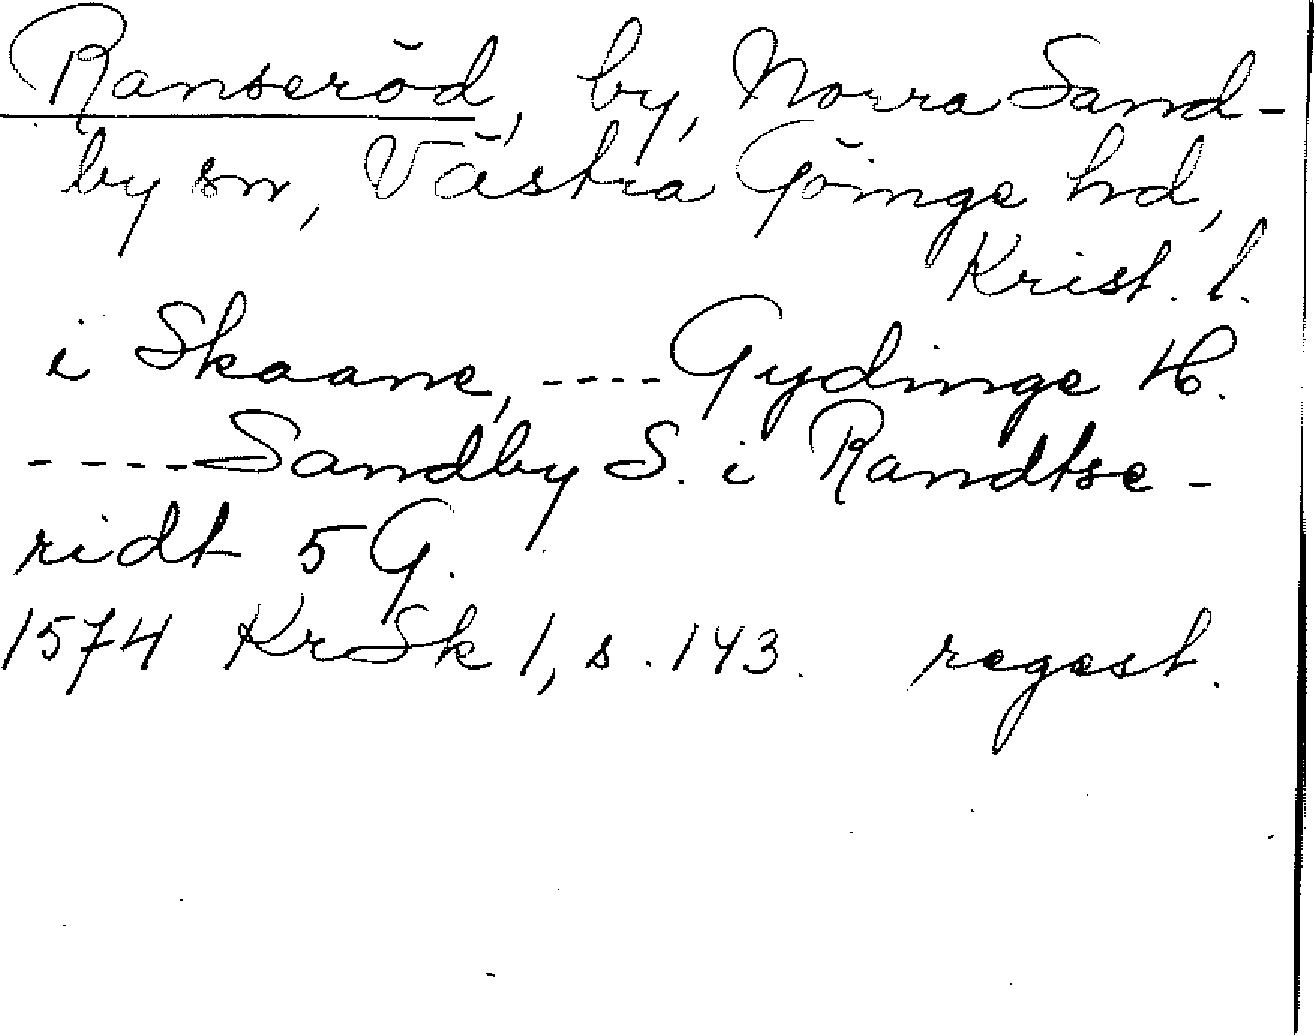 Ranseröd, by, Norra Sand-
by sn, Västra Göinge hd,
Krist. l.
i Skaane, ---- Gydinge H.
---- Sandby S. i Randtse-
ridt 5 G.
1574 KrSk 1, s. 143. regest.